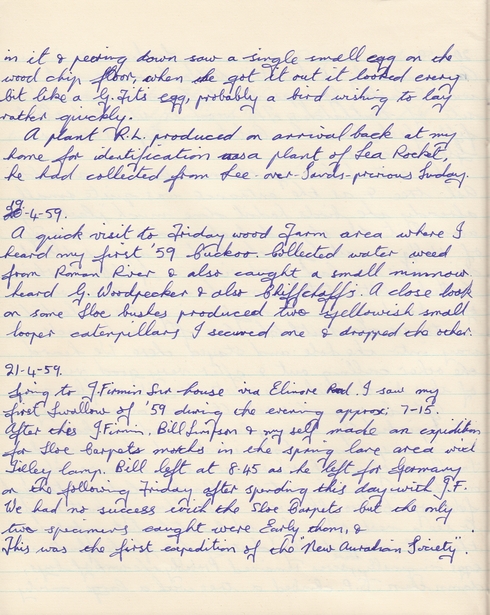 in it & peering down saw a single small egg on the
wood chip floor, when he got it out it looked every
bit like a G. Tits egg, probably a bird wishing to lay
rather quickly.
A plant R.L. produced on arrival back at my
home for identification was a plant of Sea Rocket,
he had collected from Lee-over-Sands previous Sunday.
19-4-59.
A quick visit to Friday wood Farm area where I
heard my first '59 Cuckoo. Collected water weed
from Roman River & also caught a small minnow
heard G. Woodpecker & also Chiffchaffs. A close look
on some Sloe bushes produced two yellowish small
looper caterpillars I secured one & dropped the other.
21-4-59.
going to J. Firmin Snr house via Elmore Rd. I saw my
first Swallow of '59 during the evening approx: 7-15.
After this J Firmin, Bill Simpson & my self made an expedition
for Sloe Carpets moths in the spring lane area with
Tilley lamp. Bill left at 8.45 as he left for Germany
on the following Friday after spending this day with J.F.
We had no success with the Sloe Carpets but the only
two specimens caught were Early thorn, &
This was the first expedition of the "New Society".